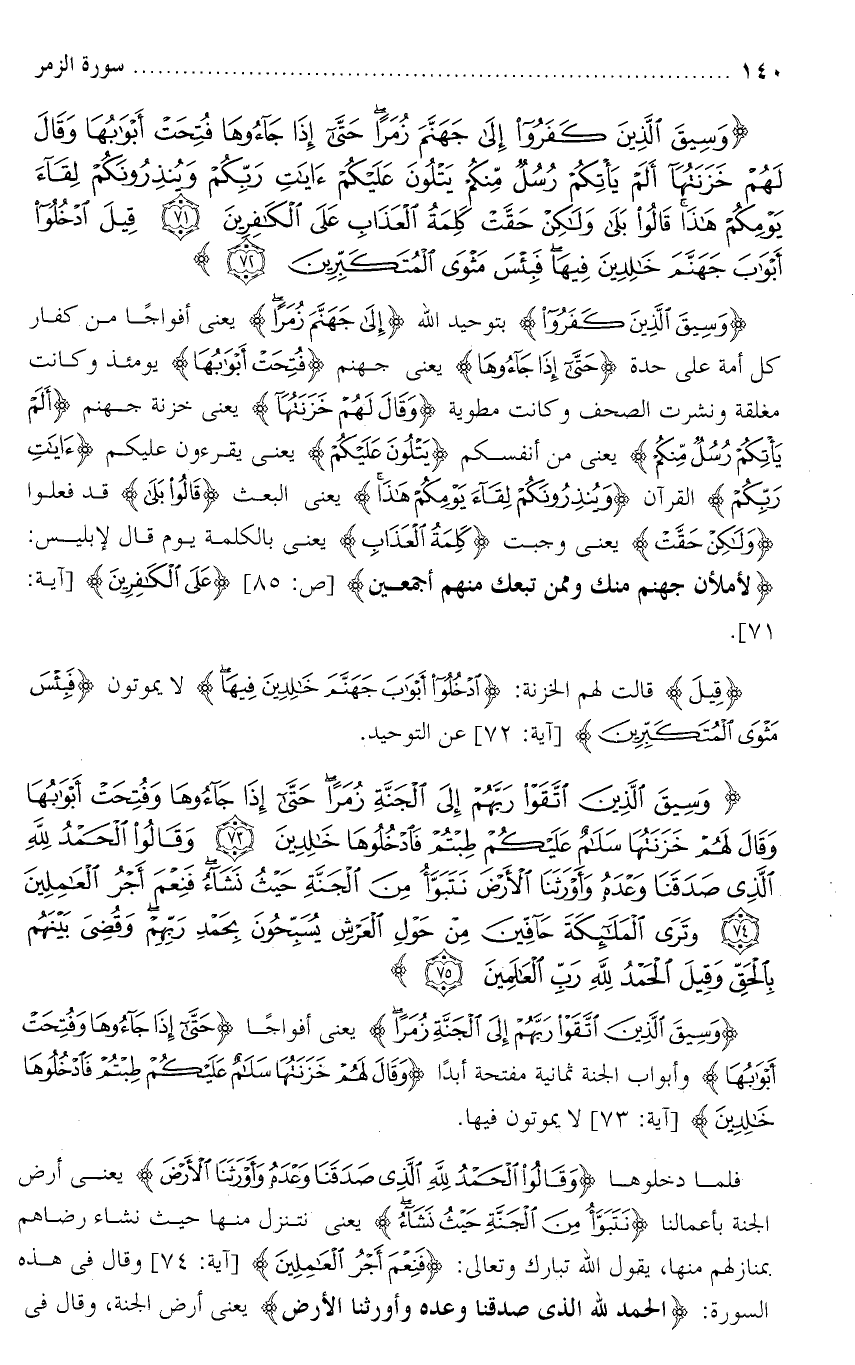 ١٤٠ ........................................................................ سورة الزمر
﴿وَسِيقَ ٱلَّذِينَ كَفَرُوٓا۟ إِلَىٰ جَهَنَّمَ زُمَرًا ۖ حَتَّىٰٓ إِذَا جَآءُوهَا فُتِحَتْ أَبْوَٰبُهَا وَقَالَ
لَهُمْ خَزَنَتُهَآ أَلَمْ يَأْتِكُمْ رُسُلٌ مِّنكُمْ يَتْلُونَ عَلَيْكُمْ ءَايَٰتِ رَبِّكُمْ وَيُنذِرُونَكُمْ لِقَآءَ
يَوْمِكُمْ هَٰذَا ۚ قَالُوا۟ بَلَىٰ وَلَٰكِنْ حَقَّتْ كَلِمَةُ ٱلْعَذَابِ عَلَى ٱلْكَٰفِرِينَ ٧١ قِيلَ ٱدْخُلُوٓا۟
أَبْوَٰبَ جَهَنَّمَ خَٰلِدِينَ فِيهَا ۖ فَبِئْسَ مَثْوَى ٱلْمُتَكَبِّرِينَ ٧٢ ﴾
﴿وَسِيقَ ٱلَّذِينَ كَفَرُوٓا۟﴾ بتوحيد الله ﴿إِلَىٰ جَهَنَّمَ زُمَرًا ۖ﴾ يعنى أفواجًا من كفار
كل أمة على حدة ﴿حَتَّىٰٓ إِذَا جَآءُوهَا﴾ يعنى جهنم ﴿فُتِحَتْ أَبْوَٰبُهَا﴾ يومئذ وكانت
مغلقة ونشرت الصحف وكانت مطوية ﴿وَقَالَ لَهُمْ خَزَنَتُهَآ﴾ يعنى خزنة جهنم ﴿أَلَمْ
يَأْتِكُمْ رُسُلٌ مِّنكُمْ﴾ يعنى من أنفسكم ﴿يَتْلُونَ عَلَيْكُمْ﴾ يعنى يقرءون عليكم ﴿ءَايَٰتِ
رَبِّكُمْ﴾ القرآن ﴿وَيُنذِرُونَكُمْ لِقَآءَ يَوْمِكُمْ هَٰذَا ۚ﴾ يعنى البعث ﴿قَالُوا۟ بَلَىٰ﴾ قد فعلوا
﴿وَلَٰكِنْ حَقَّتْ﴾ يعنى وجبت ﴿كَلِمَةُ ٱلْعَذَابِ﴾ يعنى بالكلمة يوم قال لإبليس:
﴿لأملأن جهنم منك وممن تبعك منهم أجمعين﴾ [ص: ٨٥] ﴿عَلَى ٱلْكَٰفِرِينَ﴾ [آية:
٧١].
﴿قِيلَ﴾ قالت لهم الخزنة: ﴿ٱدْخُلُوٓا۟ أَبْوَٰبَ جَهَنَّمَ خَٰلِدِينَ فِيهَا ۖ﴾ لا يموتون ﴿فَبِئْسَ
مَثْوَى ٱلْمُتَكَبِّرِينَ﴾ [آية: ٧٢] عن التوحيد.
﴿ وَسِيقَ ٱلَّذِينَ ٱتَّقَوْا۟ رَبَّهُمْ إِلَى ٱلْجَنَّةِ زُمَرًا ۖ حَتَّىٰٓ إِذَا جَآءُوهَا وَفُتِحَتْ أَبْوَٰبُهَا
وَقَالَ لَهُمْ خَزَنَتُهَا سَلَٰمٌ عَلَيْكُمْ طِبْتُمْ فَٱدْخُلُوهَا خَٰلِدِينَ ٧٣ وَقَالُوا۟ ٱلْحَمْدُ لِلَّهِ
ٱلَّذِى صَدَقَنَا وَعْدَهُۥ وَأَوْرَثَنَا ٱلْأَرْضَ نَتَبَوَّأُ مِنَ ٱلْجَنَّةِ حَيْثُ نَشَآءُ ۖ فَنِعْمَ أَجْرُ ٱلْعَٰمِلِينَ
٧٤ وَتَرَى ٱلْمَلَٰٓئِكَةَ حَآفِّينَ مِنْ حَوْلِ ٱلْعَرْشِ يُسَبِّحُونَ بِحَمْدِ رَبِّهِمْ ۖ وَقُضِىَ بَيْنَهُم
بِٱلْحَقِّ وَقِيلَ ٱلْحَمْدُ لِلَّهِ رَبِّ ٱلْعَٰلَمِينَ ٧٥ ﴾
﴿وَسِيقَ ٱلَّذِينَ ٱتَّقَوْا۟ رَبَّهُمْ إِلَى ٱلْجَنَّةِ زُمَرًا ۖ﴾ يعنى أفواجًا ﴿حَتَّىٰٓ إِذَا جَآءُوهَا وَفُتِحَتْ
أَبْوَٰبُهَا﴾ وأبواب الجنة ثمانية مفتحة أبدًا ﴿وَقَالَ لَهُمْ خَزَنَتُهَا سَلَٰمٌ عَلَيْكُمْ طِبْتُمْ فَٱدْخُلُوهَا
خَٰلِدِينَ﴾ [آية: ٧٣] لا يموتون فيها.
فلما دخلوها ﴿وَقَالُوا۟ ٱلْحَمْدُ لِلَّهِ ٱلَّذِى صَدَقَنَا وَعْدَهُۥ وَأَوْرَثَنَا ٱلْأَرْضَ﴾ يعنى أرض
الجنة بأعمالنا ﴿نَتَبَوَّأُ مِنَ ٱلْجَنَّةِ حَيْثُ نَشَآءُ ۖ﴾ يعنى نتنزل منها حيث نشاء رضاهم
بمنازلهم منها، يقول الله تبارك وتعالى: ﴿فَنِعْمَ أَجْرُ ٱلْعَٰمِلِينَ﴾ [آية: ٧٤] وقال فى هذه
السورة: ﴿الحمد لله الذى صدقنا وعده وأورثنا الأرض﴾ يعنى أرض الجنة، وقال فى